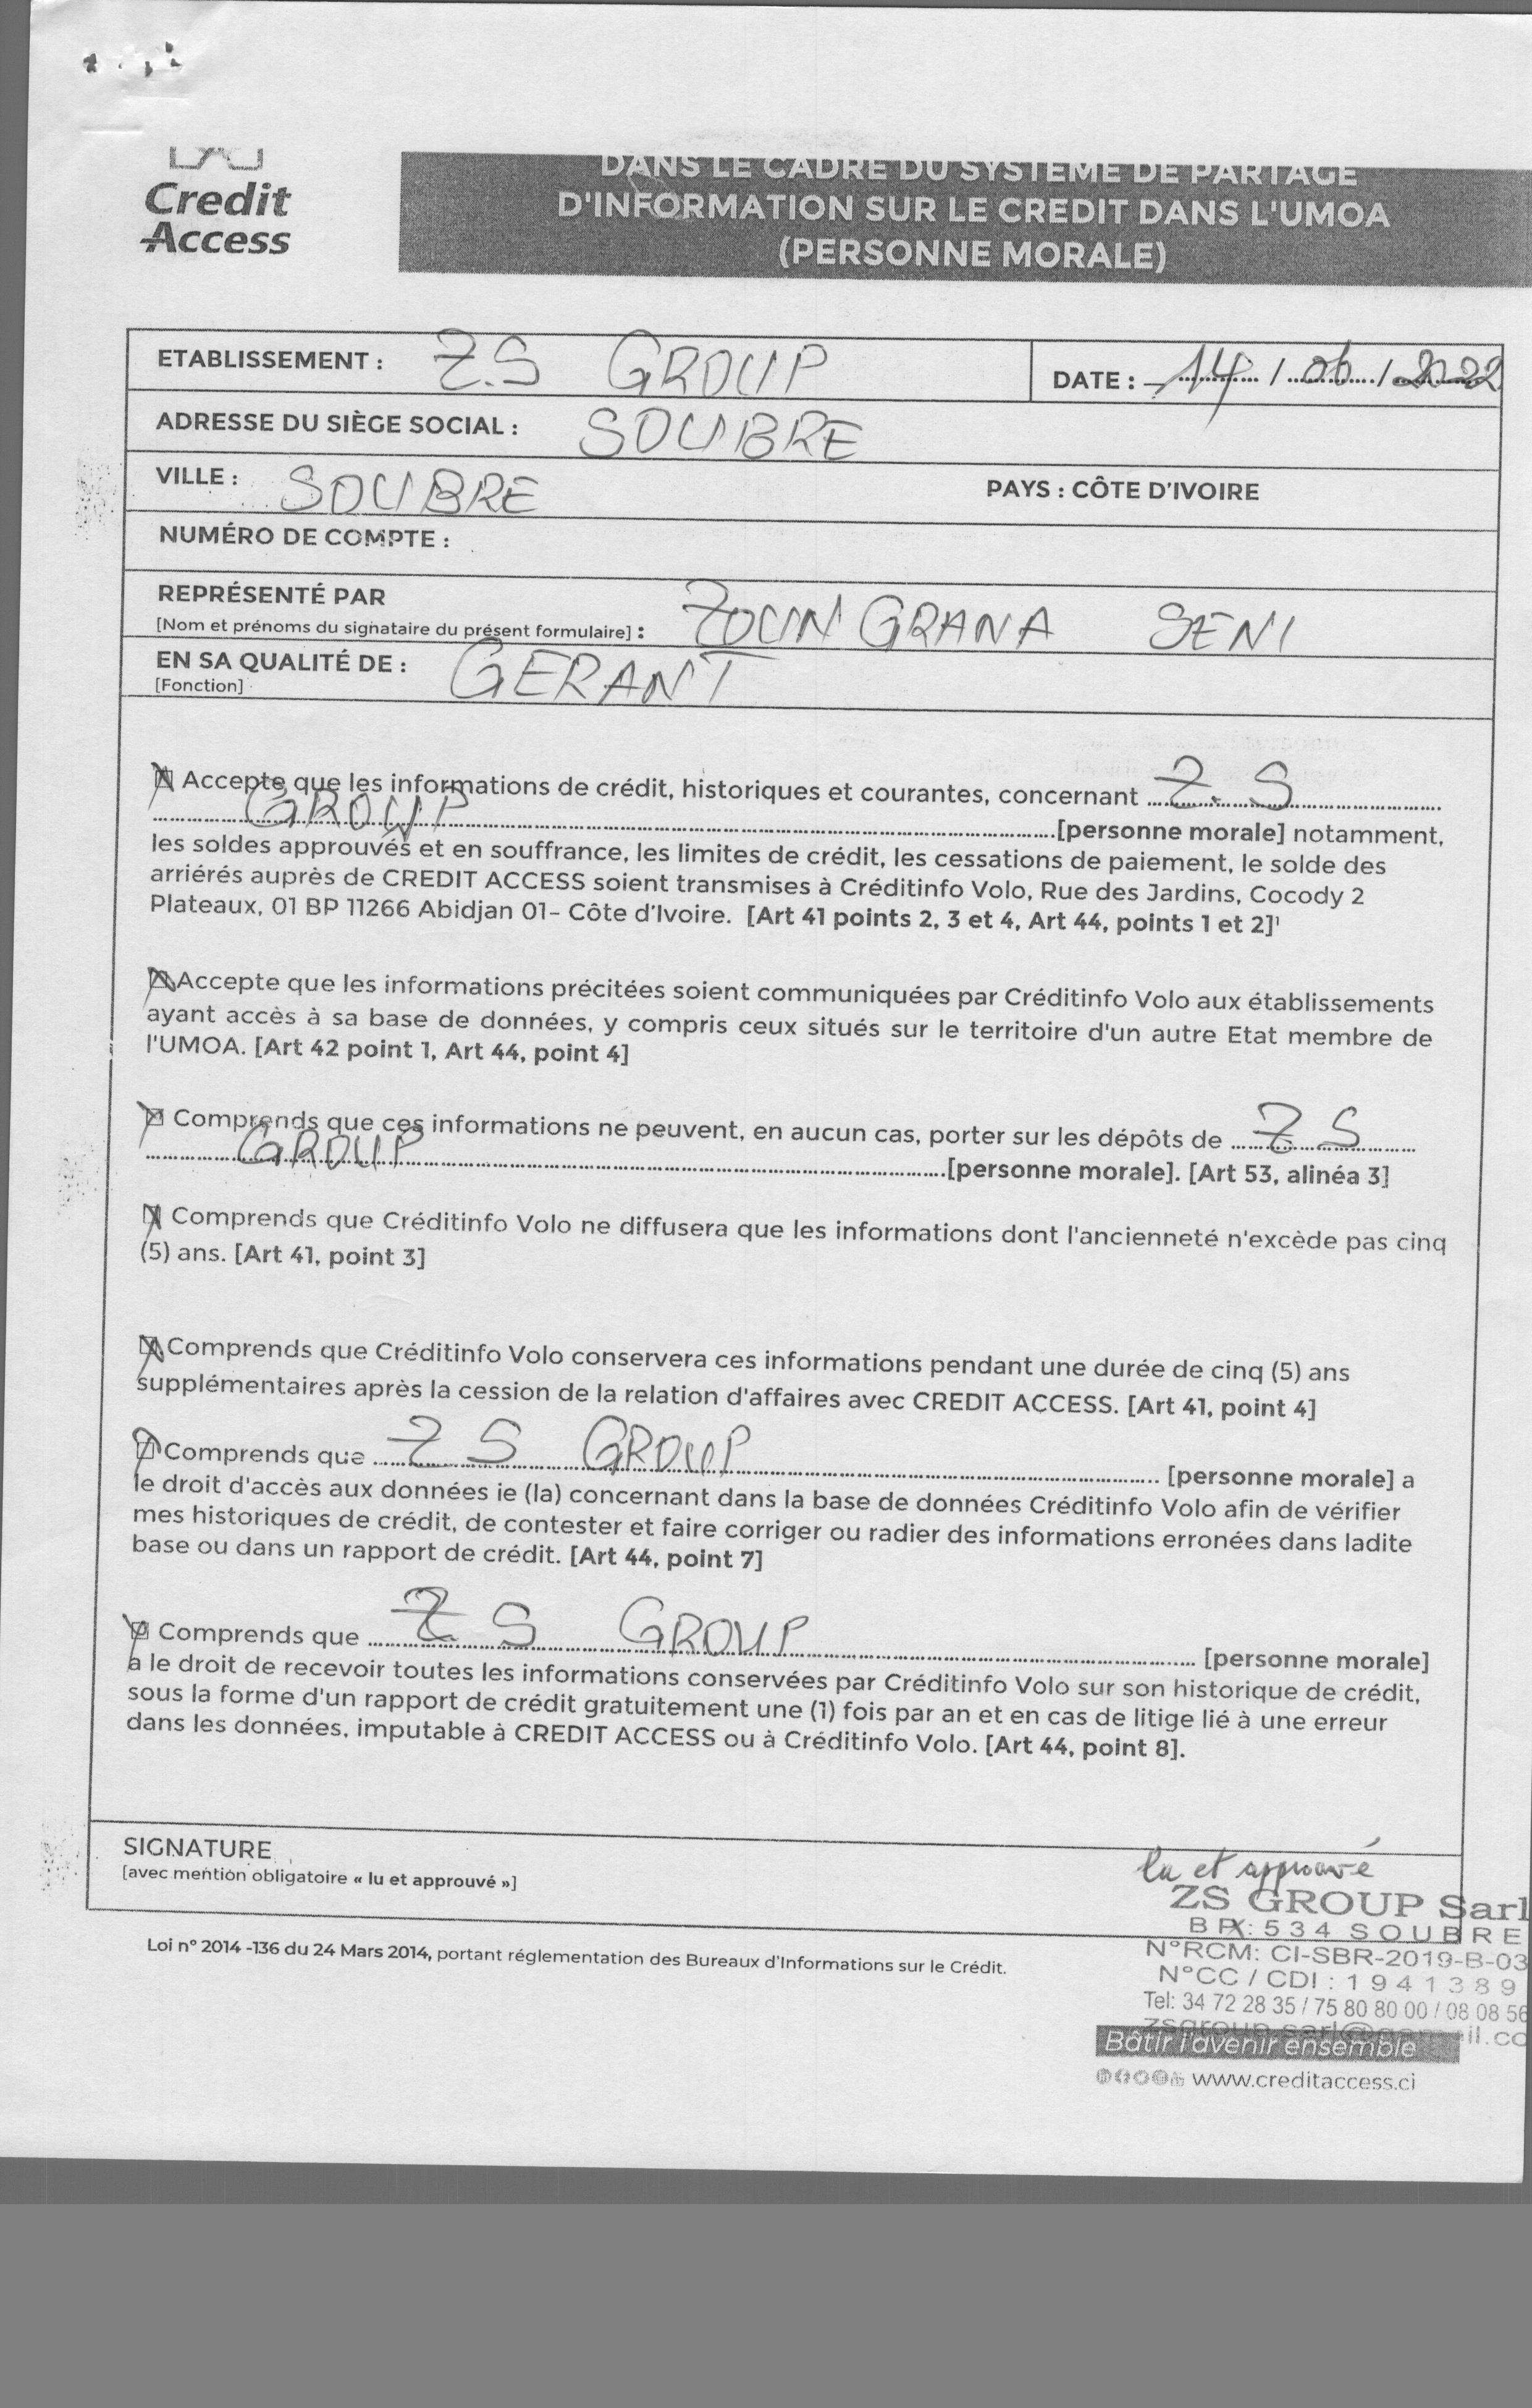 Credit
Access
DANS LE CADRE DU SYSTEME DE PARTAGE
D'INFORMATION SUR LE CREDIT DANS L'UMOA
(PERSONNE MORALE)
ETABLISSEMENT : Z.S GROUP
DATE : 14 / 06 / 2022
ADRESSE DU SIÈGE SOCIAL : SOUBRE
VILLE : SOUBRE PAYS : CÔTE D'IVOIRE
NUMÉRO DE COMPTE :
REPRÉSENTÉ PAR
[Nom et prénoms du signataire du présent formulaire] : ZOUNGRANA SENI
EN SA QUALITÉ DE : GERANT
[Fonction]
Accepte que les informations de crédit, historiques et courantes, concernant Z. S
GROUP [personne morale] notamment,
les soldes approuvés et en souffrance, les limites de crédit, les cessations de paiement, le solde des
arriérés auprès de CREDIT ACCESS soient transmises à Créditinfo Volo, Rue des Jardins, Cocody 2
Plateaux, 01 BP 11266 Abidjan 01- Côte d'Ivoire. [Art 41 points 2, 3 et 4, Art 44, points 1 et 2]¹
Accepte que les informations précitées soient communiquées par Créditinfo Volo aux établissements
ayant accès à sa base de données, y compris ceux situés sur le territoire d'un autre Etat membre de
l'UMOA. [Art 42 point 1, Art 44, point 4]
Comprends que ces informations ne peuvent, en aucun cas, porter sur les dépôts de Z S
GROUP [personne morale]. [Art 53, alinéa 3]
Comprends que Créditinfo Volo ne diffusera que les informations dont l'ancienneté n'excède pas cinq
(5) ans. [Art 41, point 3]
Comprends que Créditinfo Volo conservera ces informations pendant une durée de cinq (5) ans
supplémentaires après la cession de la relation d'affaires avec CREDIT ACCESS. [Art 41, point 4]
Comprends que Z S GROUP [personne morale] a
le droit d'accès aux données ie (la) concernant dans la base de données Créditinfo Volo afin de vérifier
mes historiques de crédit, de contester et faire corriger ou radier des informations erronées dans ladite
base ou dans un rapport de crédit. [Art 44, point 7]
Comprends que Z S GROUP [personne morale]
a le droit de recevoir toutes les informations conservées par Créditinfo Volo sur son historique de crédit,
sous la forme d'un rapport de crédit gratuitement une (1) fois par an et en cas de litige lié à une erreur
dans les données, imputable à CREDIT ACCESS ou à Créditinfo Volo. [Art 44, point 8].
SIGNATURE
[avec mention obligatoire « lu et approuvé »]
lu et approuvé
ZS GROUP Sarl
BP: 534 SOUBRE
N°RCM: CI-SBR-2019-B-03
N°CC / CDI : 1941389
Tel: 34 72 28 35 / 75 80 80 00 / 08 08 56
Loi n° 2014 -136 du 24 Mars 2014, portant réglementation des Bureaux d'Informations sur le Crédit.
Bâtir l'avenir ensemble
www.creditaccess.ci